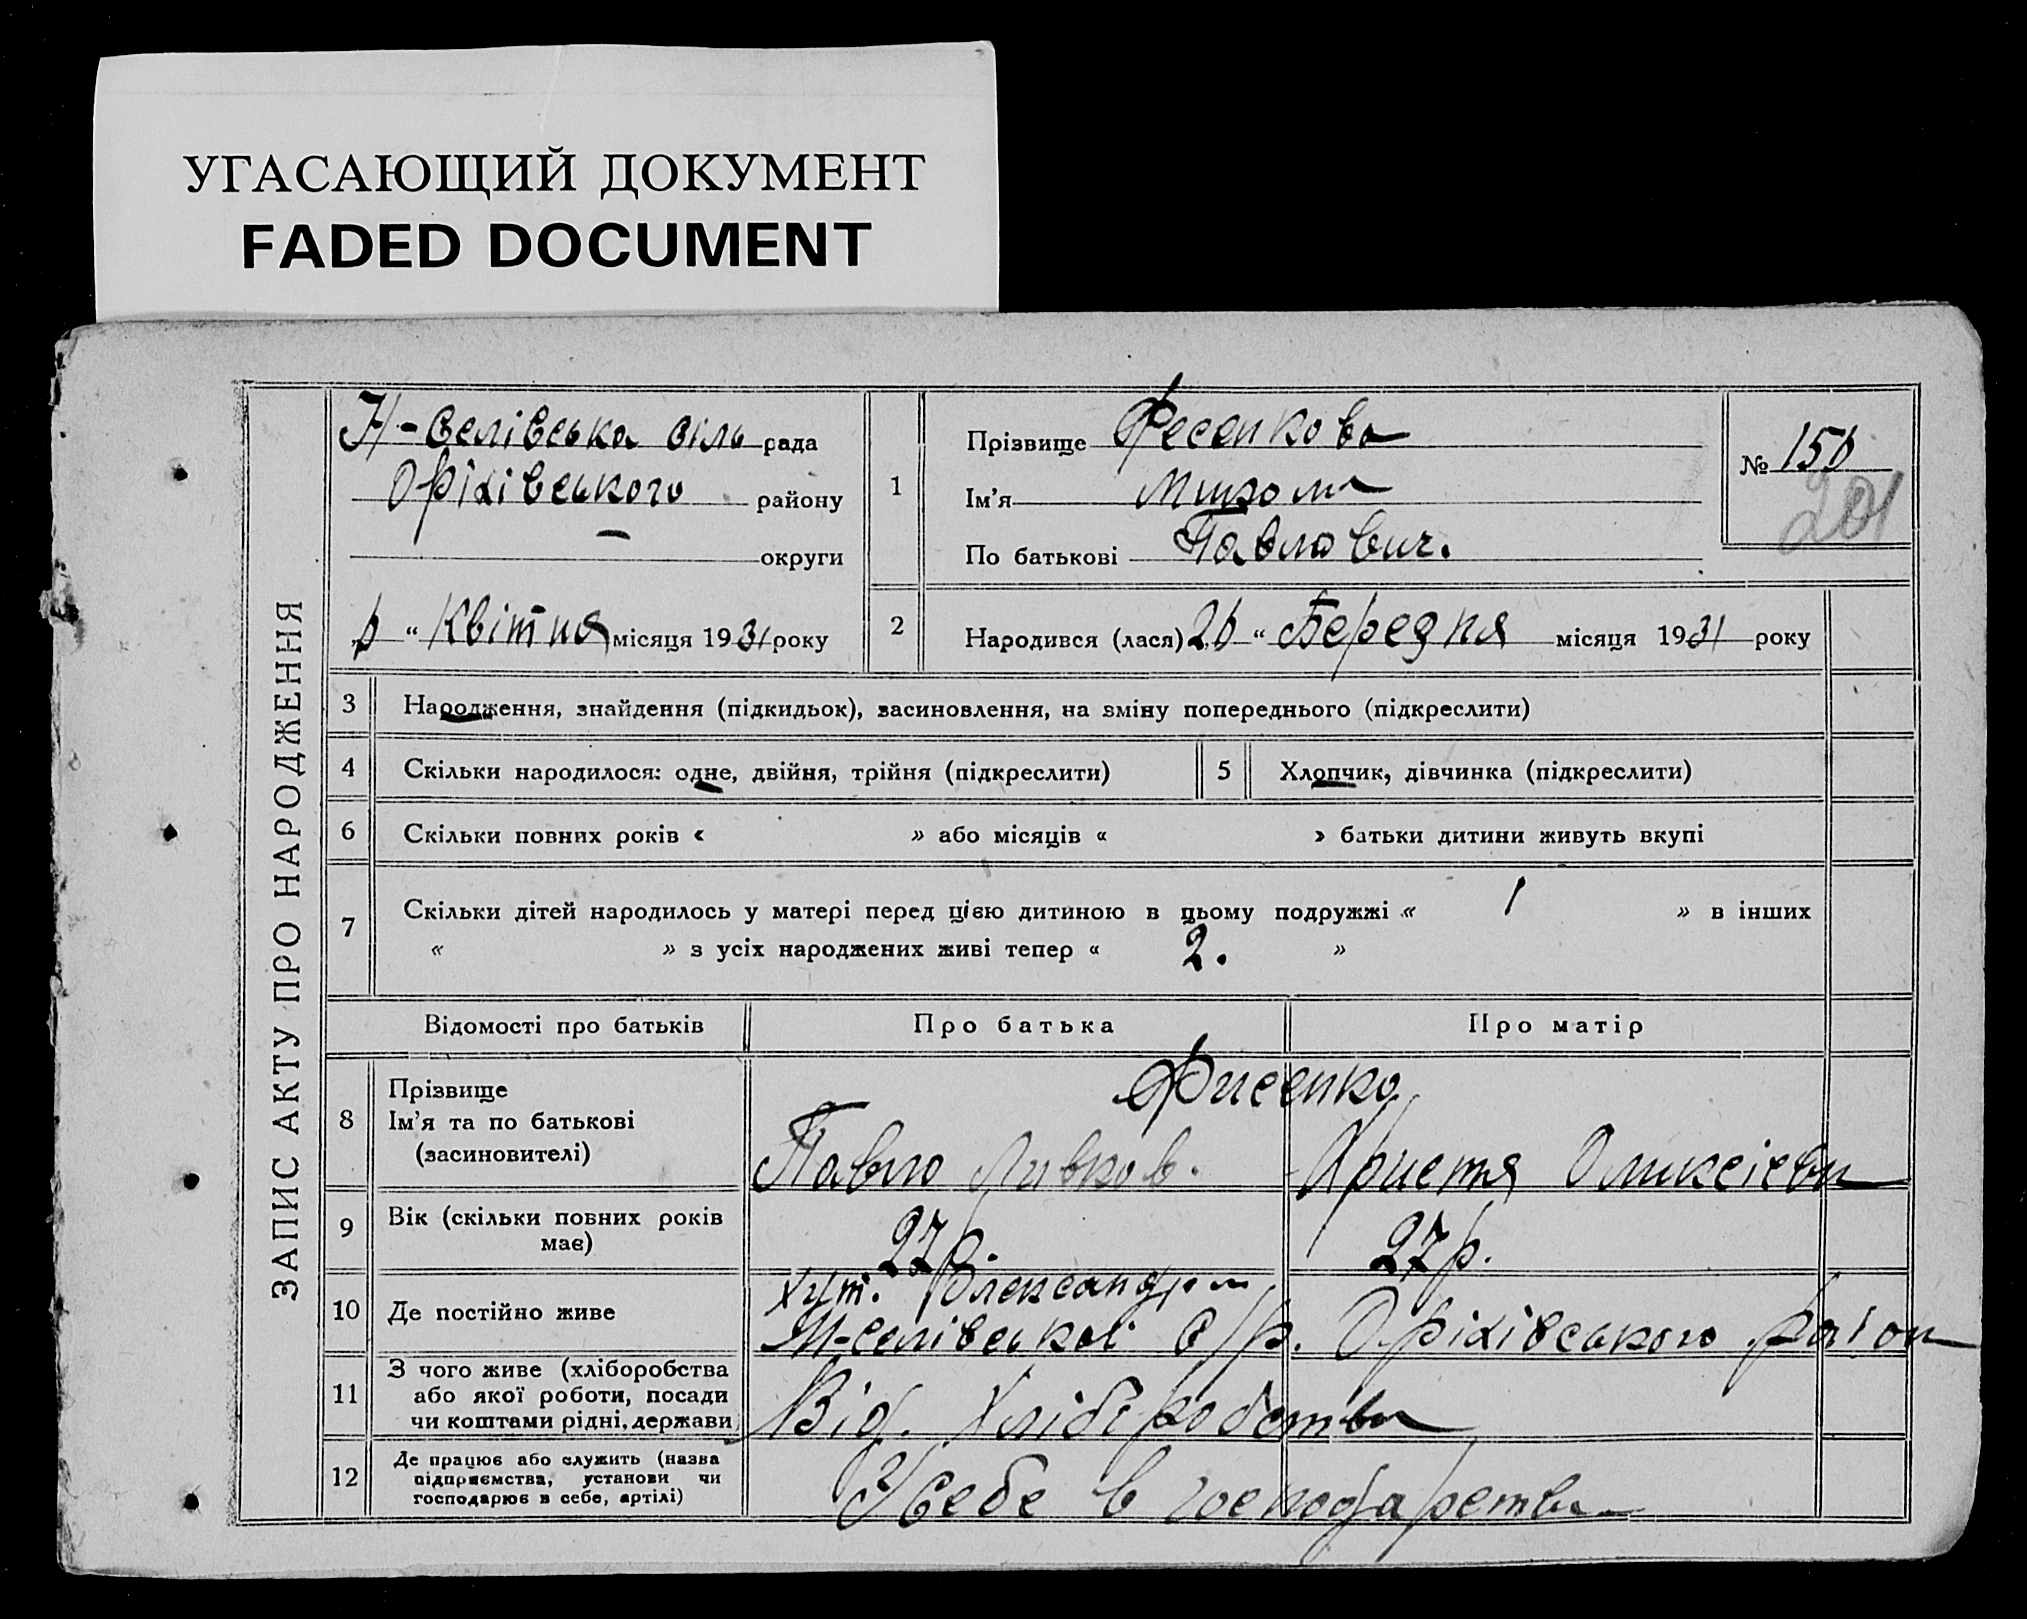 УГАСАЮЩИЙ ДОКУМЕНТ
FADED DOCUMENT
ЗАПИС АКТУ ПРО НАРОДЖЕННЯ
Н-Селівська сіль рада
Оріхівського району
— округи
" Квітня місяця 1931 року
1
Прізвище Фесенкова
Ім'я Микола
По батькові Павлович.
№ 150
201
2
Народився (лася) 26 " Березня місяця 1931 року
3 Народження, знайдення (підкидьок), засиновлення, на зміну попереднього (підкреслити)
4 Скільки народилося: одне, двійня, трійня (підкреслити) 5 Хлопчик, дівчинка (підкреслити)
6 Скільки повних років « » або місяців « » батьки дитини живуть вкупі
7 Скільки дітей народилось у матері перед цією дитиною в цьому подружжі « 1 » в інших
« » з усіх народжених живі тепер « 2. »
Відомості про батьків Про батька Про матір
8 Прізвище
Ім'я та по батькові
(засиновителі)
Фисенко
Павло Христя Оликсіевн
9 Вік (скільки повних років
має)
27р. 27р.
10 Де постійно живе
Хут. Олександрів
Н-Селівської с/р. Оріхівського район
11 З чого живе (хліборобства
або якої роботи, посади
чи коштами рідні, держави
Від. Хліборобства
12 Де працює або служить (назва
підприємства, установи чи
господарює в себе, артілі)
У себе в господарстві